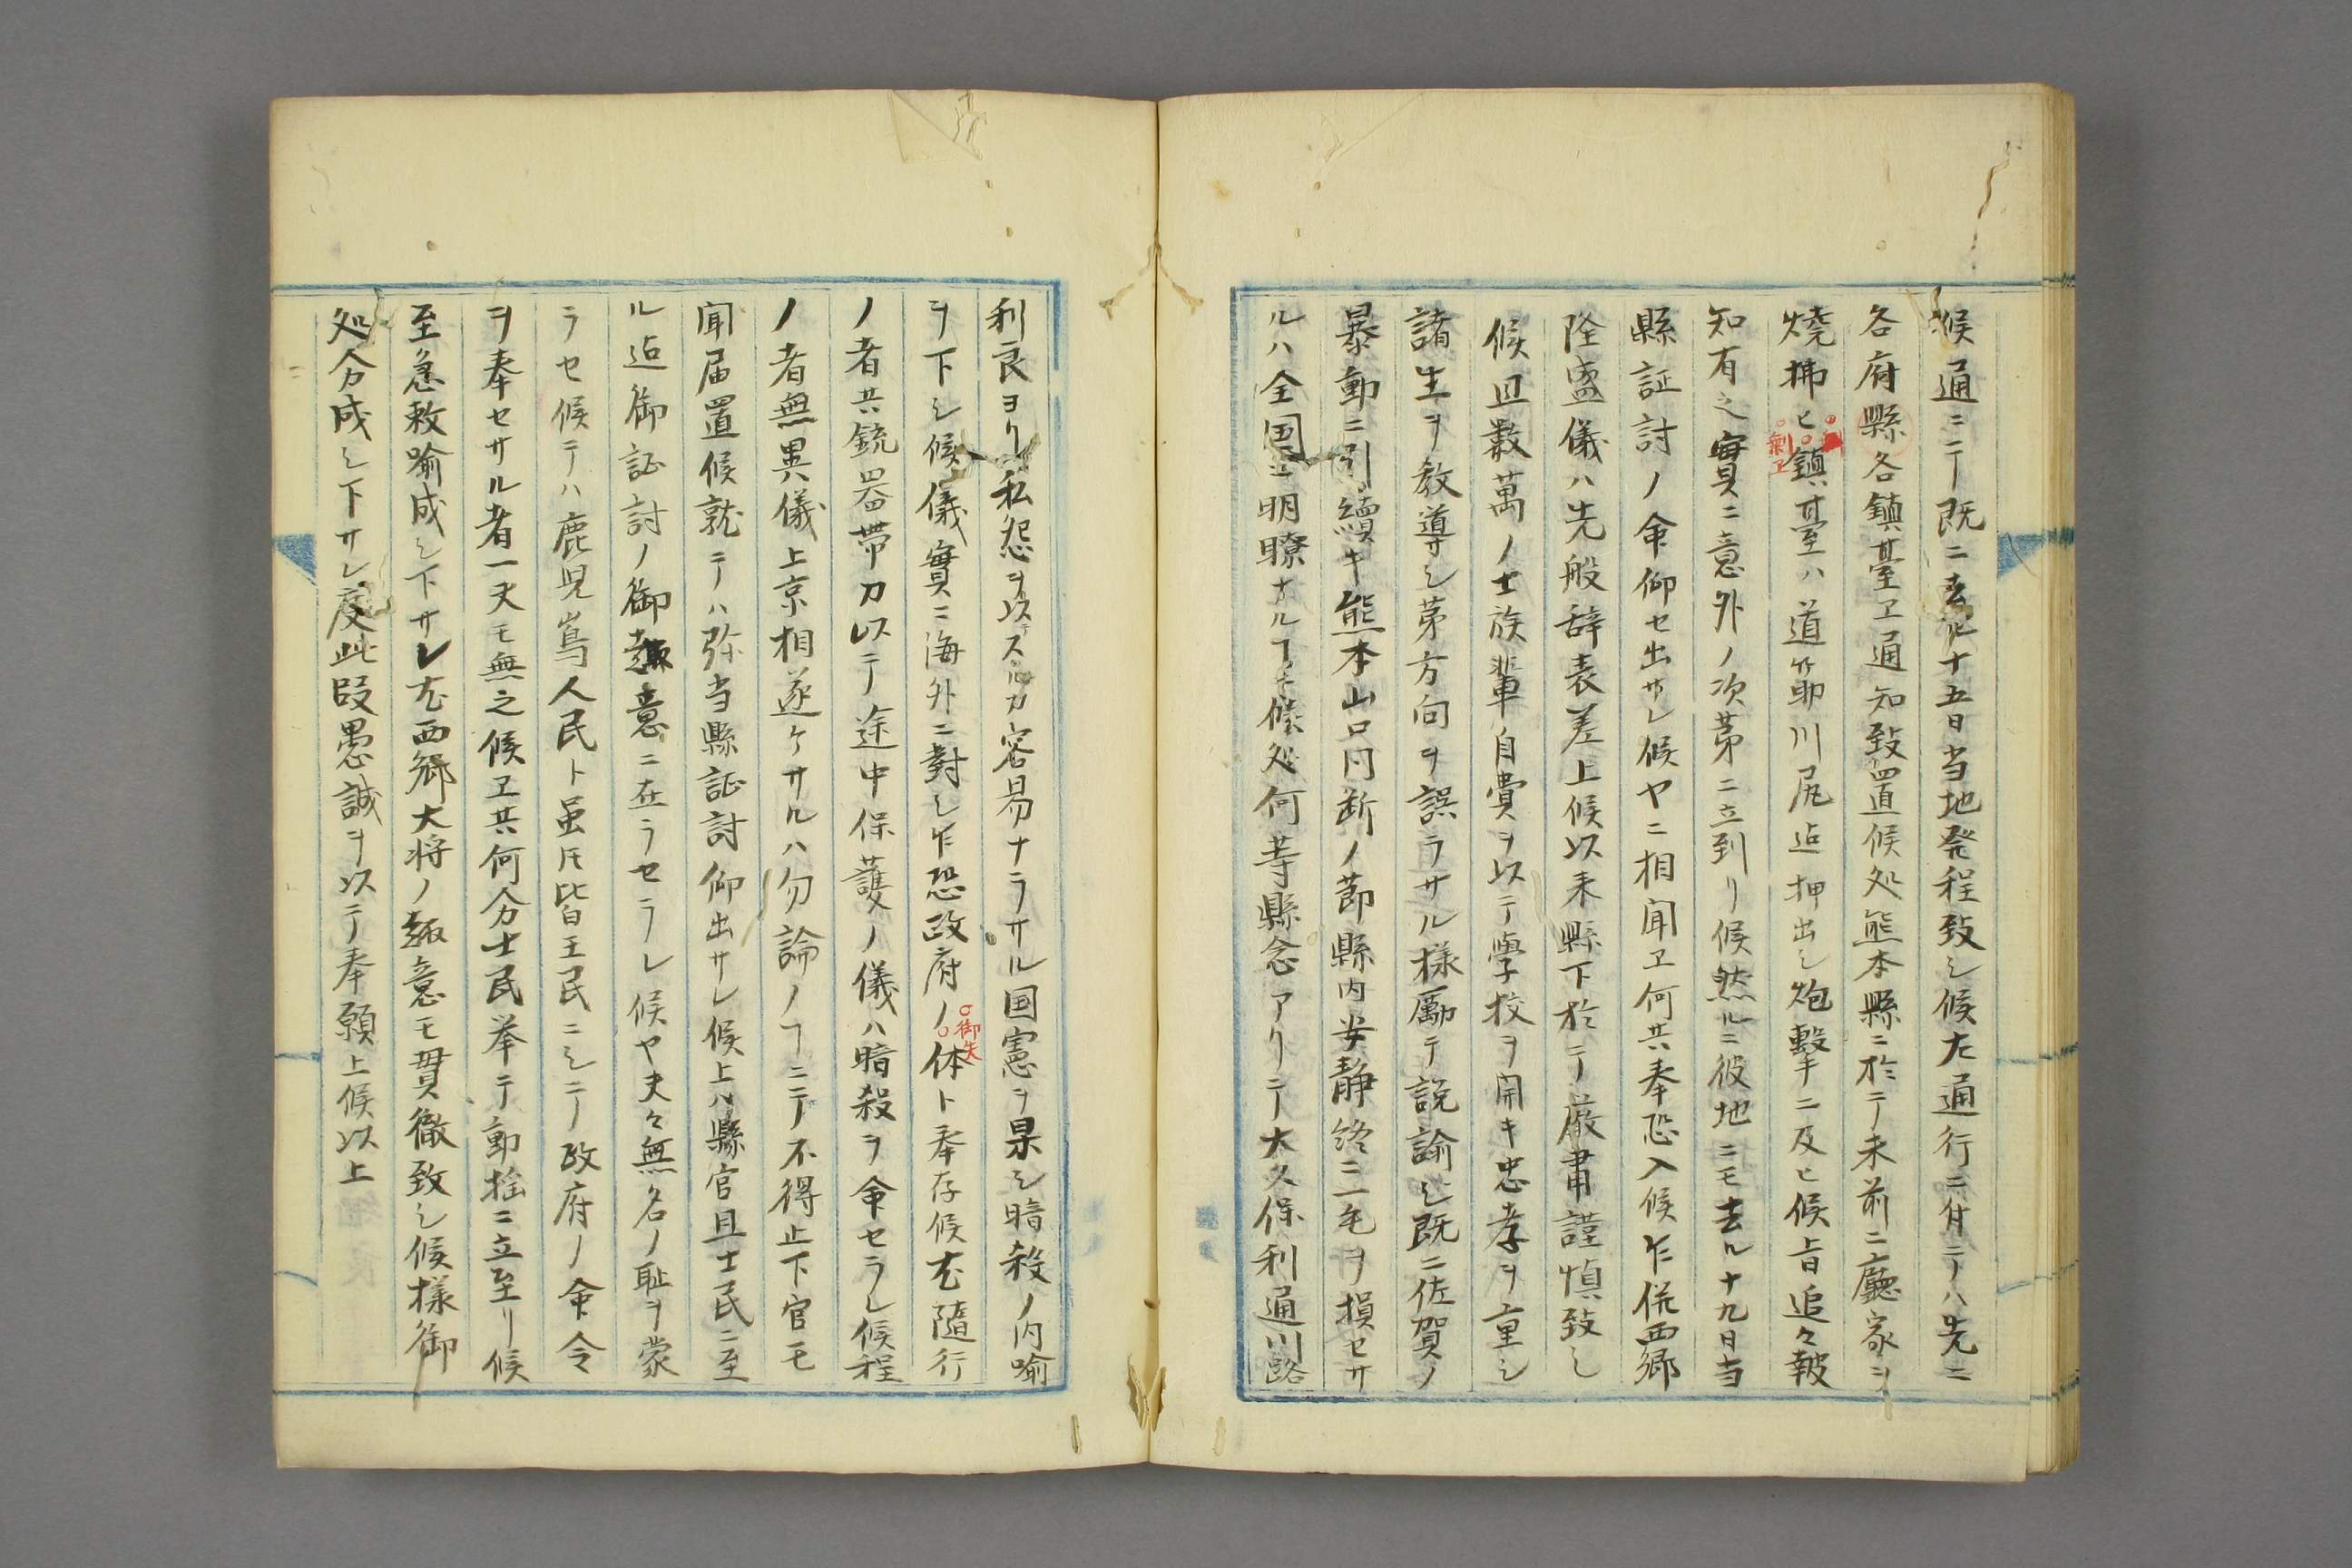 候通ニテ既ニ去ル十五日当地発程致シ候尤通行ニ付テハ先ニ
各府縣各鎮臺エ通知致置候処熊本縣ニ於テ未前ニ廳家ヲ
燒拂ヒ鎮臺ハ道筋川尻迠押出シ炮擊ニ及ヒ候旨追々報
剰エ
知有之實ニ意外ノ次第ニ立到リ候然ルニ彼地ニモ去ル十九日当
縣証討ノ命仰セ出サレ候ヤニ相聞エ何共奉恐入候乍併西郷
隆盛儀ハ先般辞表差上候以来縣下於テ厳肅謹慎致シ
候且数萬ノ士族輩自費ヲ以テ學校ヲ開キ忠孝ヲ重シ
諸生ヲ教導シ第方向ヲ誤ラサル様勵テ説諭シ既ニ佐賀ノ
暴動ニ引續キ熊本山口同断ノ節縣内安静終ニ一毛ヲ損セサ
ルハ全国ニ明瞭ナルヿニ候処何等縣念アリテ大久保利通川路
利良ヨリ私怨ヲ以テスルカ容易ナラサル国憲ヲ杲シ暗殺ノ内喻
ヲ下シ候儀實ニ海外ニ對シ乍恐政府ノ体ト奉存候尤隨行
御失
ノ者共銃器帯刀以テ途中保護ノ儀ハ暗殺ヲ命セラレ候程
ノ者無異儀上京相遂ケサルハ勿論ノヿニテ不得止下官モ
聞届置候就テハ弥当縣証討仰出サレ候上ハ縣官且士民ニ至
ル迠御証討ノ御趣意ニ在ラセラレ候ヤ夫々無名ノ耻ヲ蒙
ラセ候テハ鹿児嶌人民ト虽圧皆王民ニシテ政府ノ命令
ヲ奉セサル者一夫モ無之候エ共何分士民挙テ動揺ニ立至リ候
至急敕喻成シ下サレ尤西郷大将ノ趣意モ貫徹致シ候様御
処分成シ下サレ度此段愚誠ヲ以テ奉願上候以上